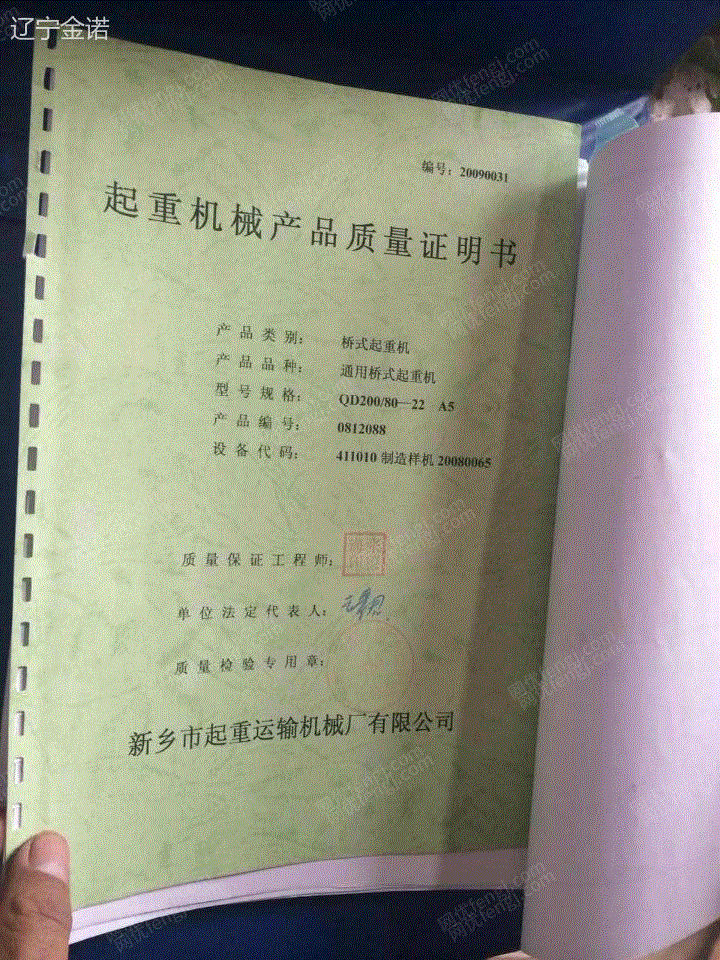 辽宁金诺
编号：20090031
起重机械产品质量证明书
产品类别： 桥式起重机
产品品种： 通用桥式起重机
型号规格： QD200/80—22 A5
产品编号： 0812088
设备代码： 411010 制造样机 20080065
质量保证工程师：
单位法定代表人：
质量检验专用章：
新乡市起重运输机械厂有限公司